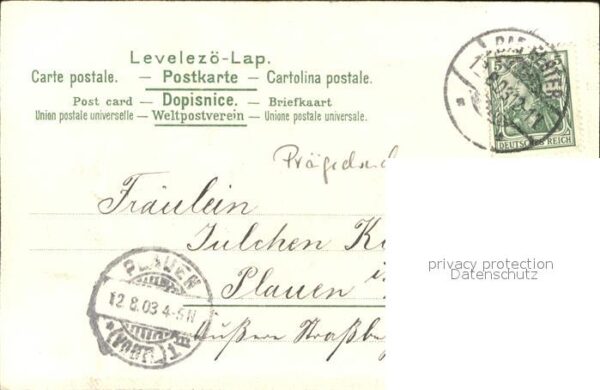 Levelezö-Lap.
Carte postale. — Postkarte — Cartolina postale.
Post card — Dopisnice. — Briefkaart
Union postale universelle — Weltpostverein — Unione postale universale.
5
BAD ELSTER
DEUTSCHES REICH
Prägedruck
Fräulein
Julchen K
Plauen i.
Äußere Straßbe
PLAUEN
12.8.03 4-5N
(VOGTL.)
privacy protection
Datenschutz